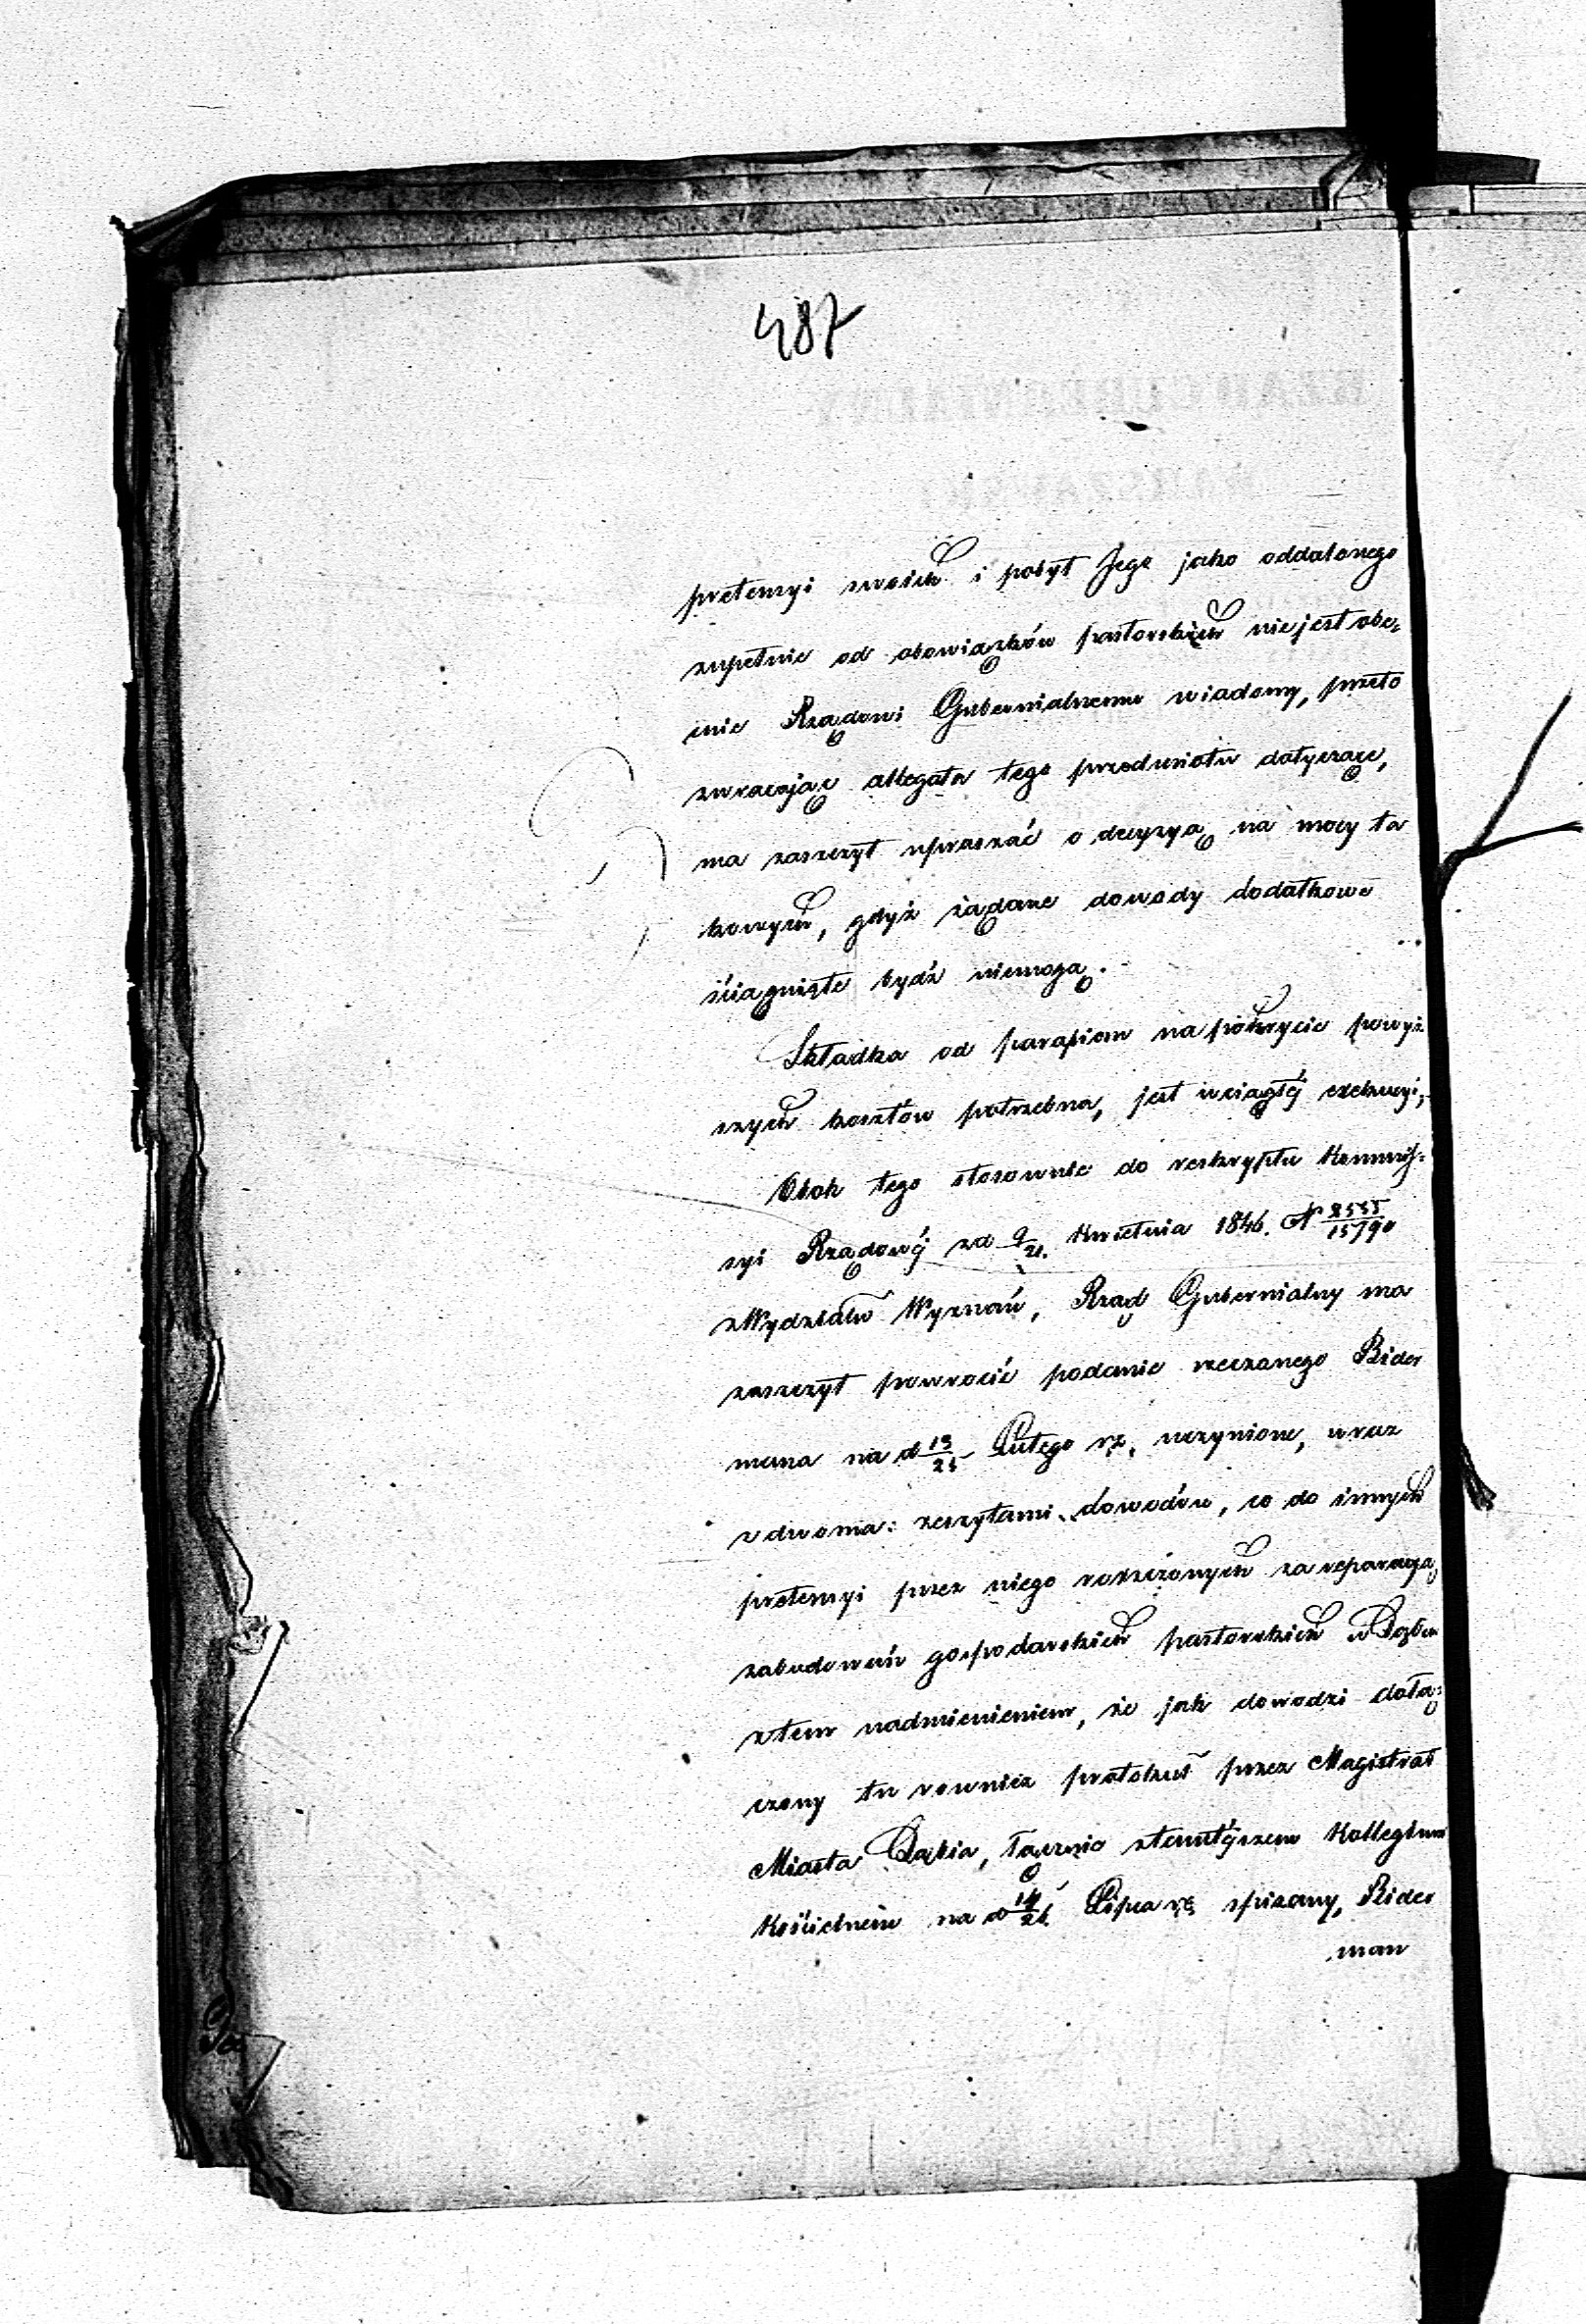 487
pretensyi swoich i pobyt Jego jako oddalonego
zupełnie od obowiązków pastorskich nie jest obe,
cnie Rządowi Gubernialnemu wiadomy, przeto
zwracając allegata tego przedmiotu dotyczące,
ma zaszczyt upraszać o decyzyą na mocy ta
kowych, gdyż żądane dowody dodatkowe
ściągnięte bydź niemogą.
Składka od parafian na pokrycie powyż
szych kosztów potrzebna, jest w ciągłéj exekucyi,
Obok tego stosownie do reskryptu Kommis-
syi Rządowéj z d 9/21. Kwietnia 1846. N 2555/15790
z Wydziału Wyznań, Rząd Gubernialny ma
zaszczyt powrocić podanie rzeczonego Bider
mana na d 13/25 Lutego rz. uczynione, wraz
z dwoma: zeszytami dowodów, co do innych
pretensyi przez niego roszczonych za reparacyą
zabudowań gospodarskich pastorskich w Dąbiu
z tem nadmienieniem, że jak dowodzi dołą:
czony tu rownież protokuł przez Magistrat
Miasta Dąbia, łącznie z tamtéjszem Kollegium
Kościelnem na d 14/26 Lipca rz spisany, Bider
man